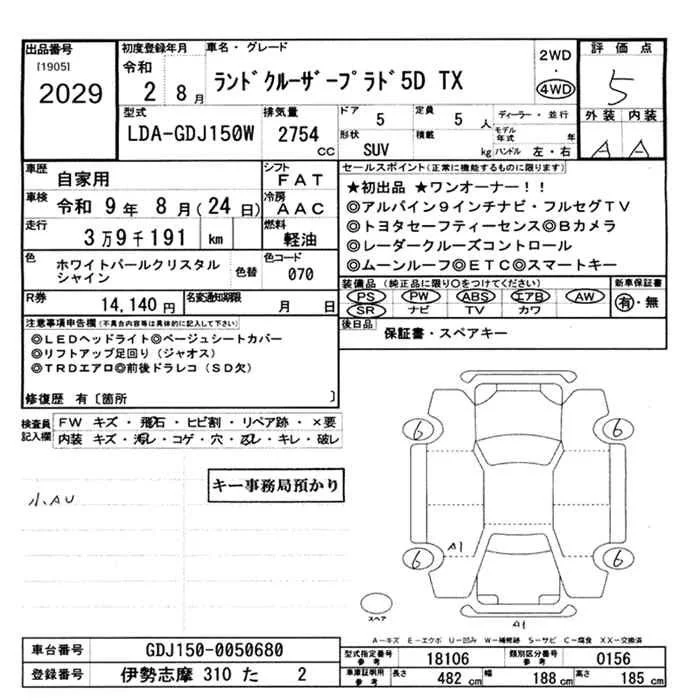 出品番号
[1905]
2029
初度登録年月
令和
2 8月
車名・グレード
ランドクルーザープラド5D TX
2WD
・
4WD
評価点
5
外装 内装
A A
型式
LDA-GDJ150W
排気量
2754
CC
ドア
5
定員
5 人
形状
SUV
積載
kg
ディーラー・並行
モデル年式 年
ハンドル 左・右
車歴
自家用
シフト
FAT
車検
令和 9年 8月(24日)
冷房
AAC
走行
3万9千191 km
燃料
軽油
色
ホワイトパールクリスタル
シャイン
色替
色コード
070
R券
14,140円
名変通知期限
月 日
セールスポイント(正常に機能するものに限ります)
★初出品 ★ワンオーナー!!
◎アルパイン9インチナビ・フルセグTV
◎トヨタセーフティーセンス◎Bカメラ
◎レーダークルーズコントロール
◎ムーンルーフ◎ETC◎スマートキー
装備品(純正品に限り○をつけてください)
PS PW ABS エアB AW
SR ナビ TV カワ
新車保証書
有・無
後日品
保証書・スペアキー
注意事項申告欄(不具合内容等は具体的に記入して下さい)
◎LEDヘッドライト◎ベージュシートカバー
◎リフトアップ足回り(ジャオス)
◎TRDエアロ◎前後ドラレコ(SD欠)
修復歴 有〔箇所 〕
検査員
記入欄
FW キズ・飛石・ヒビ割・リペア跡・×要
内装 キズ・汚レ・コゲ・穴・凹レ・キレ・破レ
キー事務局預かり
小AU
6 6
6 6
A1
A1
スペア
A-キズ E-エクボ U-凹み W-補修跡 S-サビ C-腐食 XX-交換済
車台番号
GDJ150-0050680
登録番号
伊勢志摩 310 た 2
型式指定番号
参考
18106
類別区分番号
参考
0156
車庫証明用
参考
長さ
482 cm
幅
188 cm
高さ
185 cm